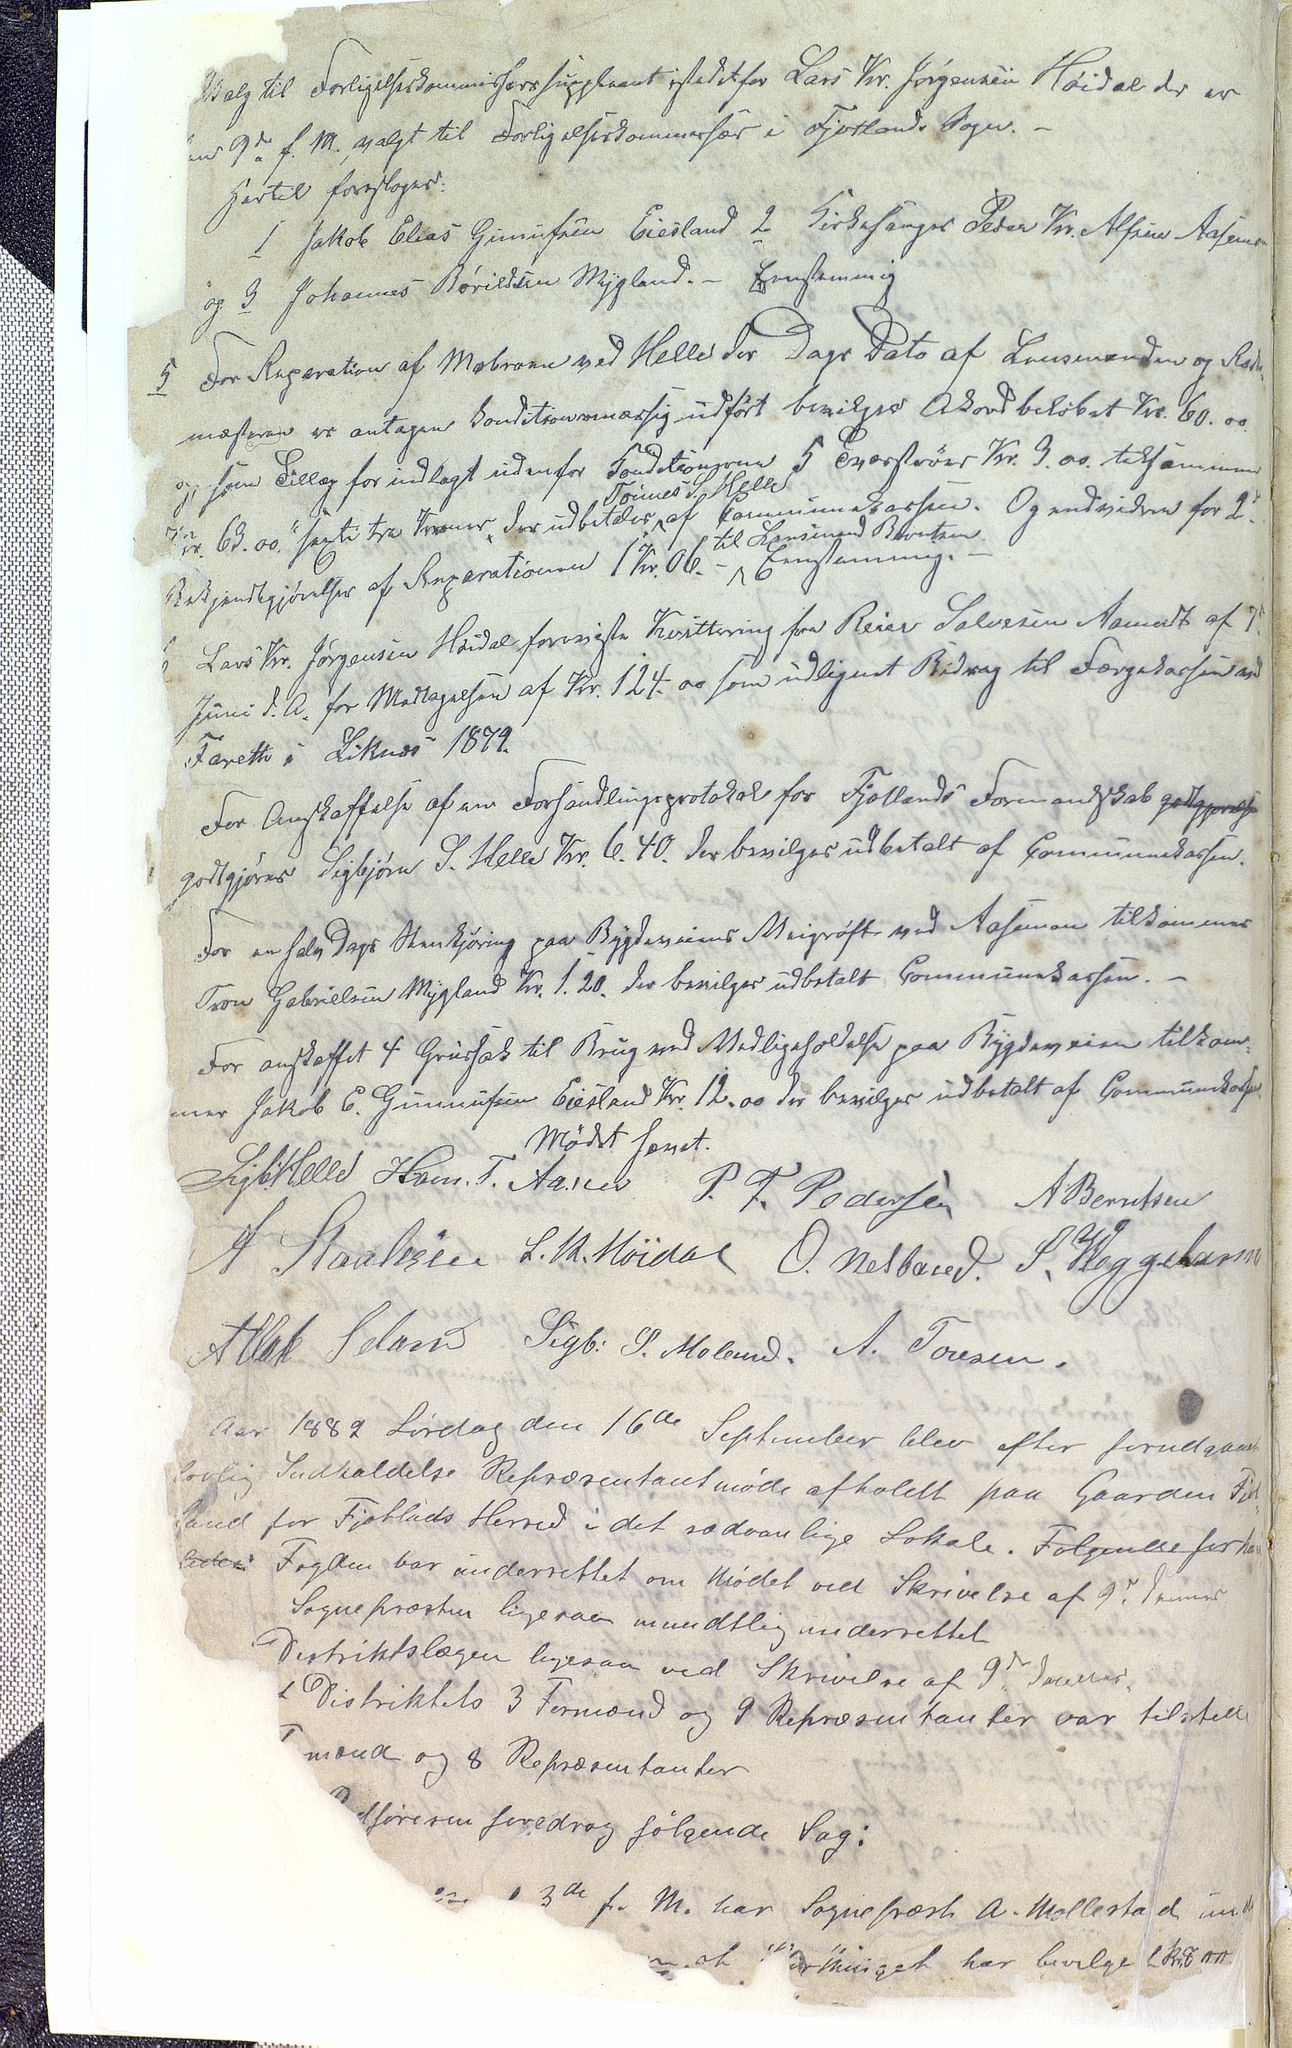 Valg til Forligelseskommissærsuppleant istedetfor Lars Kr. Jørgensen Høidal der er
den 9de f. M. valgt til Forligelseskommissær i Fjotlands Sogn. –
Hertil foreslages:
1 Jakob Elias Gunufsen Eiesland 2 Kirkesanger Peder Kr. Alfsen Aasemoen
og 3 Johannes Børildsen Mygland. – Eenstemmig
5 For Reparation af Mobroen ved Helle der Dags Dato af Lensmanden og Rode-
mesteren er antagen konditionsmæssig udført bevilges Akordbeløbet Kr. 60.00
og som Tillæg for indlagt udenfor Konditionerne 5 Tverstrøer Kr. 3.00. tilsammen
Tønnes S. Helle
Kr. 63.00. "sexti tre Kroner, der udbetales af Communekassen. Og endvidere for 2de
til Lensmand Berntsen
Bekjendtgjørelser af Reparationen 1 Kr. 06. – Eenstemmig. –
6 Lars Kr. Jørgensen Høidal foreviste Kvittering fra Reier Salvesen Aamodt af 7de
Juni d. A. for Modtagelsen af Kr. 124.00 som udlignet Bidrag til Færgekassen ved
Fareth i Liknes 1879.
For Anskaffelse af en Forhandlingsprotokol for Fjotlands Formandskab godtgjøres
godtgjøres Sigbjørn S. Helle Kr. 6.40. der bevilges udbetalt af Communekassen.
For en halv Dags Stenkjøring paa Bygdeveiens Veigrøft ved Aasemoen tilkommer
Tron Gabrielsen Mygland Kr. 1.20. der bevilges udbetalt Communekassen. –
For anskaffet 4 Grusfak til Brug ved Vedligeholdelse paa Bygdeveien tilkom-
mer Jakob E. Gunnufsen Eiesland Kr. 12.00 der bevilges udbetalt af Communekassen
Mødet hævet.
Sigb. Helle Ham. T. Aasen P. F. Pedersen A Berntsen
A Staalesen L. K. Höidal O. Netland. S. Skeggestad
Atlak Seland Sigb: S. Moland. A. Tonesen.
Aar 1882 Lördag den 16de September blev efter forudgaaende
lovlig Indkaldelse Repræsentantmøde afholdt paa Gaarden Fjot-
land for Fjotlands Herred i det sædvanlige Lokale. Følgende forhand
ledes: Fogden var underrettet om Mødet ved Skrivelse af 9de dennes
Sognepræsten ligesaa mundtlig underrettet
Distriktslægen ligesaa ved Skrivelse af 9de dennes.
Distriktets 3 Formænd og 9 Repræsentanter var tilstede
mænd og 8 Repræsentanter
Ordføreren foredrog følgende Sag:
3de f. M. har Sognepræst A. Mollestad
at Storthinget har bevilget Kr.